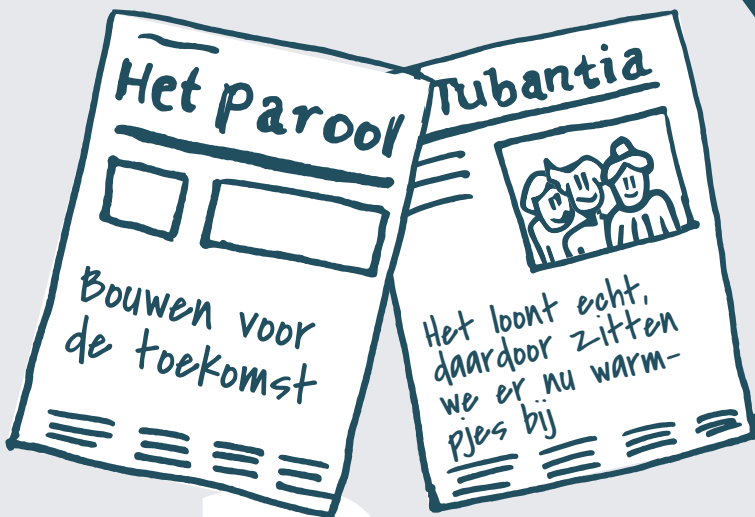 Het Parool
Bouwen voor
de toekomst
Tubantia
Het loont echt,
daardoor zitten
we er nu warm-
pjes bij